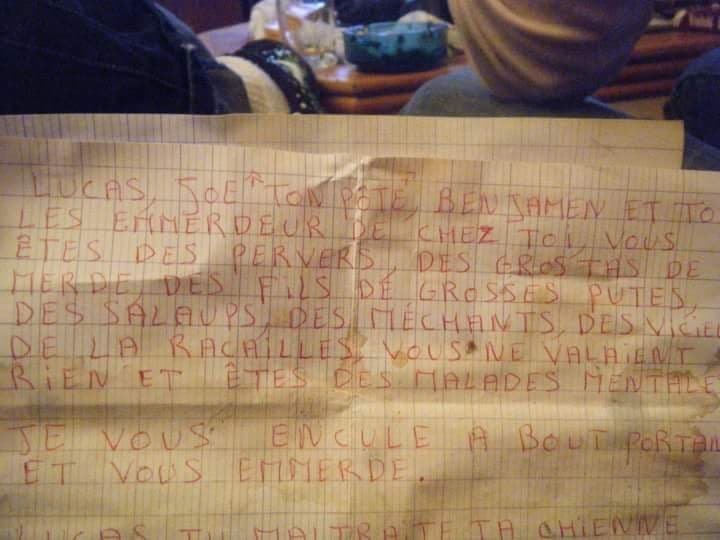 LUCAS, JOE "TON PÔTE", BENJAMEN ET TO
LES EMMERDEUR DE CHEZ TOI, VOUS
ÊTES DES PERVERS, DES GROS TAS DE
MERDE, DES FILS DE GROSSES PUTES,
DES SALAUPS, DES MÉCHANTS, DES VICIEU
DE LA RACAILLES, VOUS NE VALAIENT
RIEN ET ÊTES DES MALADES MENTALE
JE VOUS ENCULE A BOUT PORTAN
ET VOUS EMMERDE.
LUCAS TU MALTRAITE TA CHIENNE